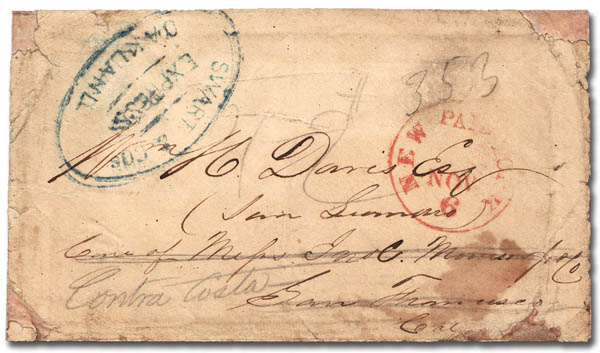 SWART & COS
EXPRESS
OAKLAND
353
NEW YORK
PAID
NOV
6
Wm H. Davis Esq
(San Leandro)
Care of Messrs
& Co
Contra Costa
San Francisco
Cal